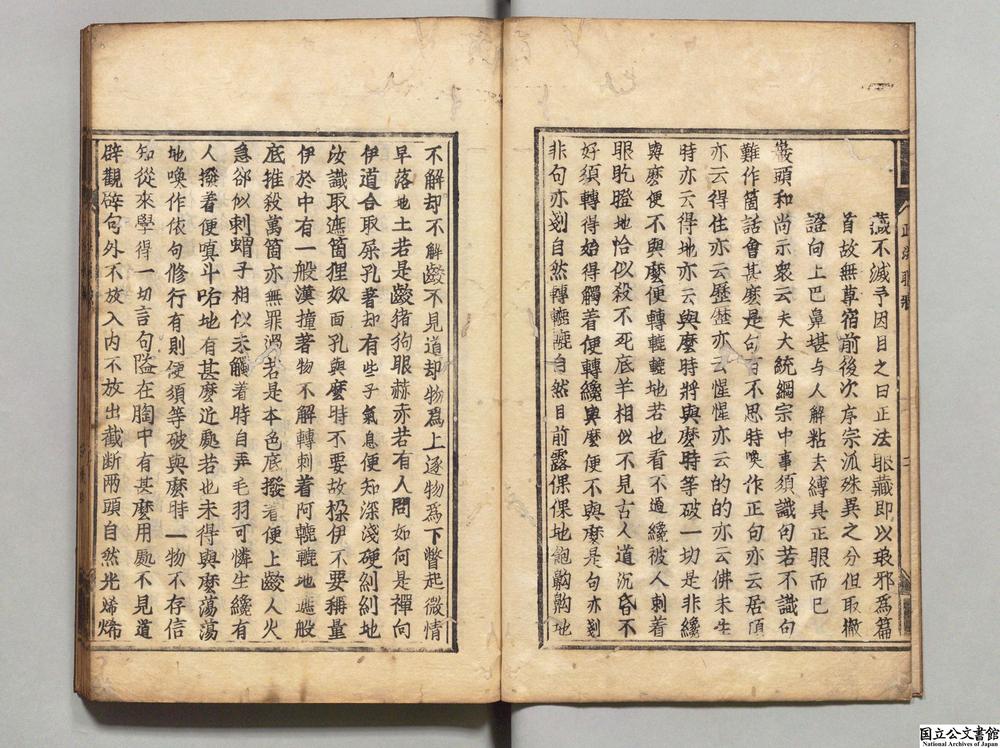 藏不滅予因目之曰正法眼藏即以琅邪爲篇
首故無尊宿前後次序宗派殊異之分但取徹
證向上巴鼻堪与人解粘去縛具正眼而已
巖頭和尚示衆云夫大統綱宗中事須識句若不識句
難作箇話會甚麽是句百不思時喚作正句亦云居頂
亦云得住亦云歷歷亦云惺惺亦云的的亦云佛未生
時亦云得地亦云與麽時將與麽時等破一切是非纔
與麽便不與麽便轉轆轆地若也看不過纔被人刺着
眼眨瞪地恰似殺不死底羊相似不見古人道沉昏不
好須轉得始得觸着便轉纔與麽便不與麽是句亦剗
非句亦剗自然轉轆轆自然目前露倮倮地飽齁齁地
不解却不解齩不見道却物爲上逐物爲下瞥起微情
早落地土若是齩猪狗眼赫赤若有人問如何是禪向
伊道合取屎孔著却有些子氣息便知深淺硬糾糾地
汝識取遮箇狸奴面孔與麽時不要故探伊不要稱量
伊於中有一般漢撞著物不解轉刺着阿轆轆地遮般
底椎殺萬箇亦無罪過若是本色底撥着便上齩人火
急却似刺蝟子相似未觸着時自弄毛羽可憐生纔有
人撥着便嗔斗㖃地有甚麽近處若也未得與麽蕩蕩
地喚作依句修行有則便須等破與麽時一物不存信
知從來學得一切言句隘在胸中有甚麽用處不見道
辟觀辟句外不放入内不放出截斷兩頭自然光烯烯
国立公文書館
National Archives of Japan